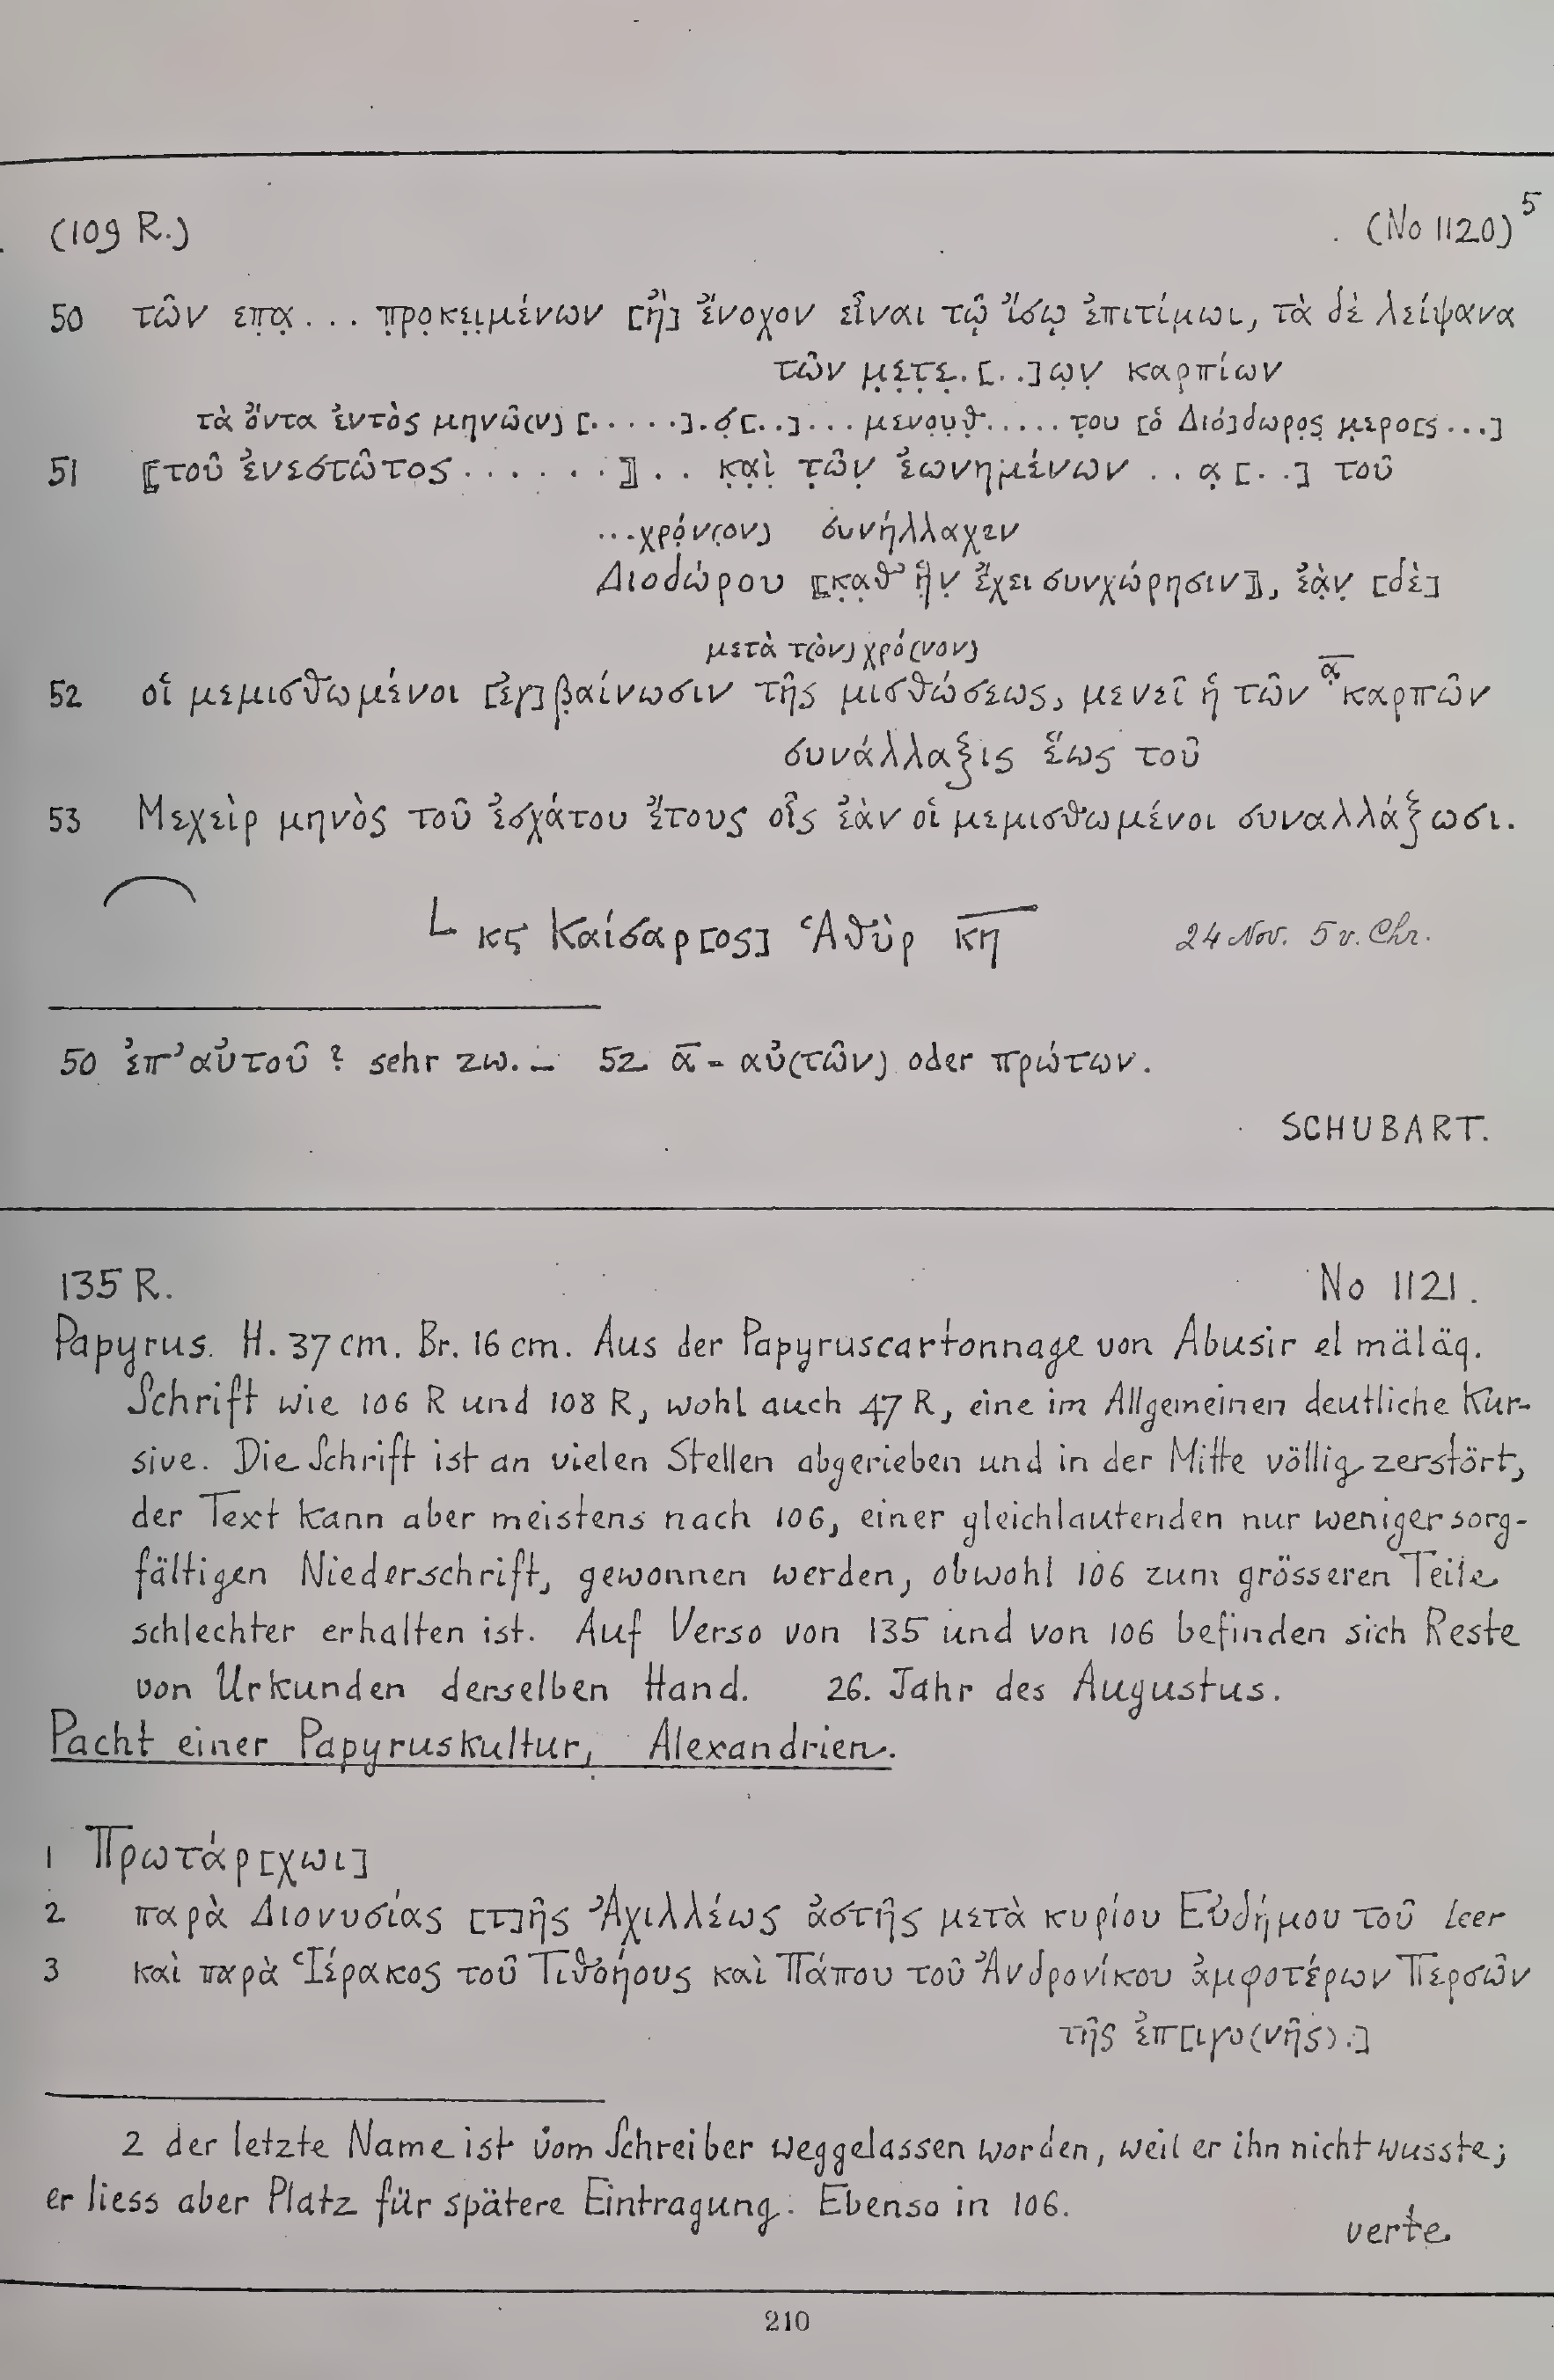 (109 R.) (No 1120)⁵
50 τῶν επ̣α̣... π̣ρ̣ο̣κ̣ει̣μένων [ἢ] ἔνοχον εἶναι τῷ ἴσῳ ἐπιτίμωι, τὰ δὲ λείψανα
τῶν μ̣ε̣τ̣ε̣.[..]ω̣ν̣ καρπίων
τὰ ὄντα ἐντὸς μηνῶ(ν) [.....].σ̣[..]... μενο̣υ̣θ̣..... τ̣ου [ὁ Διό]δωρο̣ς̣ μ̣ερο[ς...]
51 ⟦τοῦ ἐνεστῶτος ......⟧.. κ̣α̣ὶ̣ τ̣ῶ̣ν̣ ἐωνημένων .. α̣ [..] τοῦ
...χρό̣ν(ον) συνήλλαχεν
Διοδώρου ⟦κ̣α̣θ᾽ ἣ̣ν̣ ἔχει συνχώρησιν⟧, ἐὰ̣ν̣ [δὲ]
μετὰ τ(ὸν) χρό(νον)
52 οἱ μεμισθωμένοι [ἐγ]β̣αίνωσιν τῆς μισθώσεως, μενεῖ ἡ τῶν α̣̅ καρπῶν
συνάλλαξις ἕως τοῦ
53 Μεχεὶρ μηνὸς τοῦ ἐσχάτου ἔτους οἷς ἐὰν οἱ μεμισθωμένοι συναλλάξωσι.
L κς Καίσαρ[ος] Ἁθὺρ κ̅η̅ 24 Nov. 5 v. Chr.
50 ἐπ᾽ αὐτοῦ ? sehr zw. — 52 α̅ = αὐ(τῶν) oder πρώτων.
SCHUBART.
135 R. No 1121.
Papyrus. H. 37 cm. Br. 16 cm. Aus der Papyruscartonnage von Abusir el mäläq.
Schrift wie 106 R und 108 R, wohl auch 47 R, eine im Allgemeinen deutliche Kur-
sive. Die Schrift ist an vielen Stellen abgerieben und in der Mitte völlig zerstört,
der Text kann aber meistens nach 106, einer gleichlautenden nur weniger sorg-
fältigen Niederschrift, gewonnen werden, obwohl 106 zum grösseren Teile
schlechter erhalten ist. Auf Verso von 135 und von 106 befinden sich Reste
von Urkunden derselben Hand. 26. Jahr des Augustus.
Pacht einer Papyruskultur, Alexandrien.
1 Πρωτάρ[χωι]
2 παρὰ Διονυσίας [τ]ῆς Ἀχιλλέως ἀστῆς μετὰ κυρίου Εὐδήμου τοῦ leer
3 καὶ παρὰ Ἱέρακος τοῦ Τιθοήους καὶ Πάπου τοῦ Ἀνδρονίκου ἀμφοτέρων Περσῶν
τῆς ἐπ[ιγο(νῆς).]
2 der letzte Name ist vom Schreiber weggelassen worden, weil er ihn nicht wusste;
er liess aber Platz für spätere Eintragung. Ebenso in 106.
verte
210